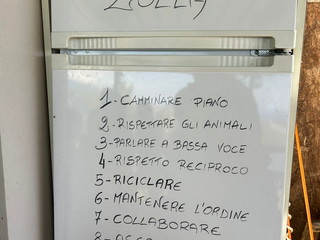 1- CAMMINARE PIANO
2- RISPETTARE GLI ANIMALI
3- PARLARE A BASSA VOCE
4- RISPETTO RECIPROCO
5- RICICLARE
6- MANTENERE L'ORDINE
7- COLLABORARE